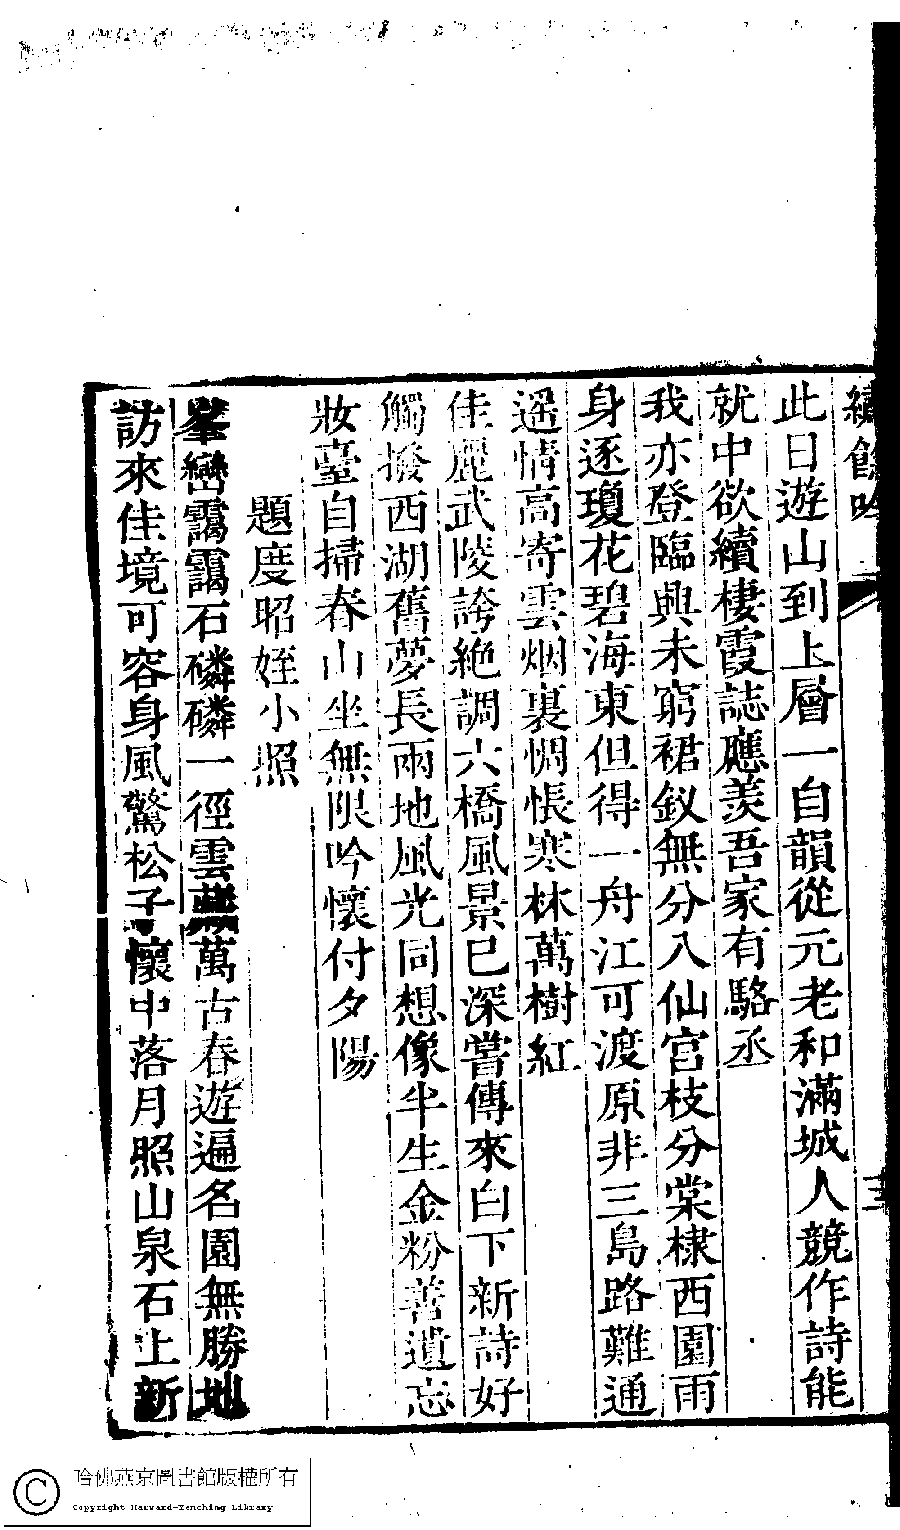 續餘吟
此日遊山到上層一自韻從元老和滿城人競作詩能
就中欲續棲霞誌應羨吾家有駱丞
我亦登臨興未窮裙釵無分入仙宮枝分棠棣西園雨
身逐瓊花碧海東但得一舟江可渡原非三島路難通
遥情高寄雲烟裏惆悵寒林萬樹紅
佳麗武陵誇絶調六橋風景已深嘗傳來白下新詩好
觸撥西湖舊夢長兩地風光同想像半生金粉善遺忘
妝臺自掃春山坐無限吟懷付夕陽
題度昭姪小照
峯巒靄靄石磷磷一徑雲藏萬古春遊遍名園無勝地
訪來佳境可容身風驚松子懷中落月照山泉石上新
哈佛燕京圖書館版權所有
Copyright Harvard-Yenching Library